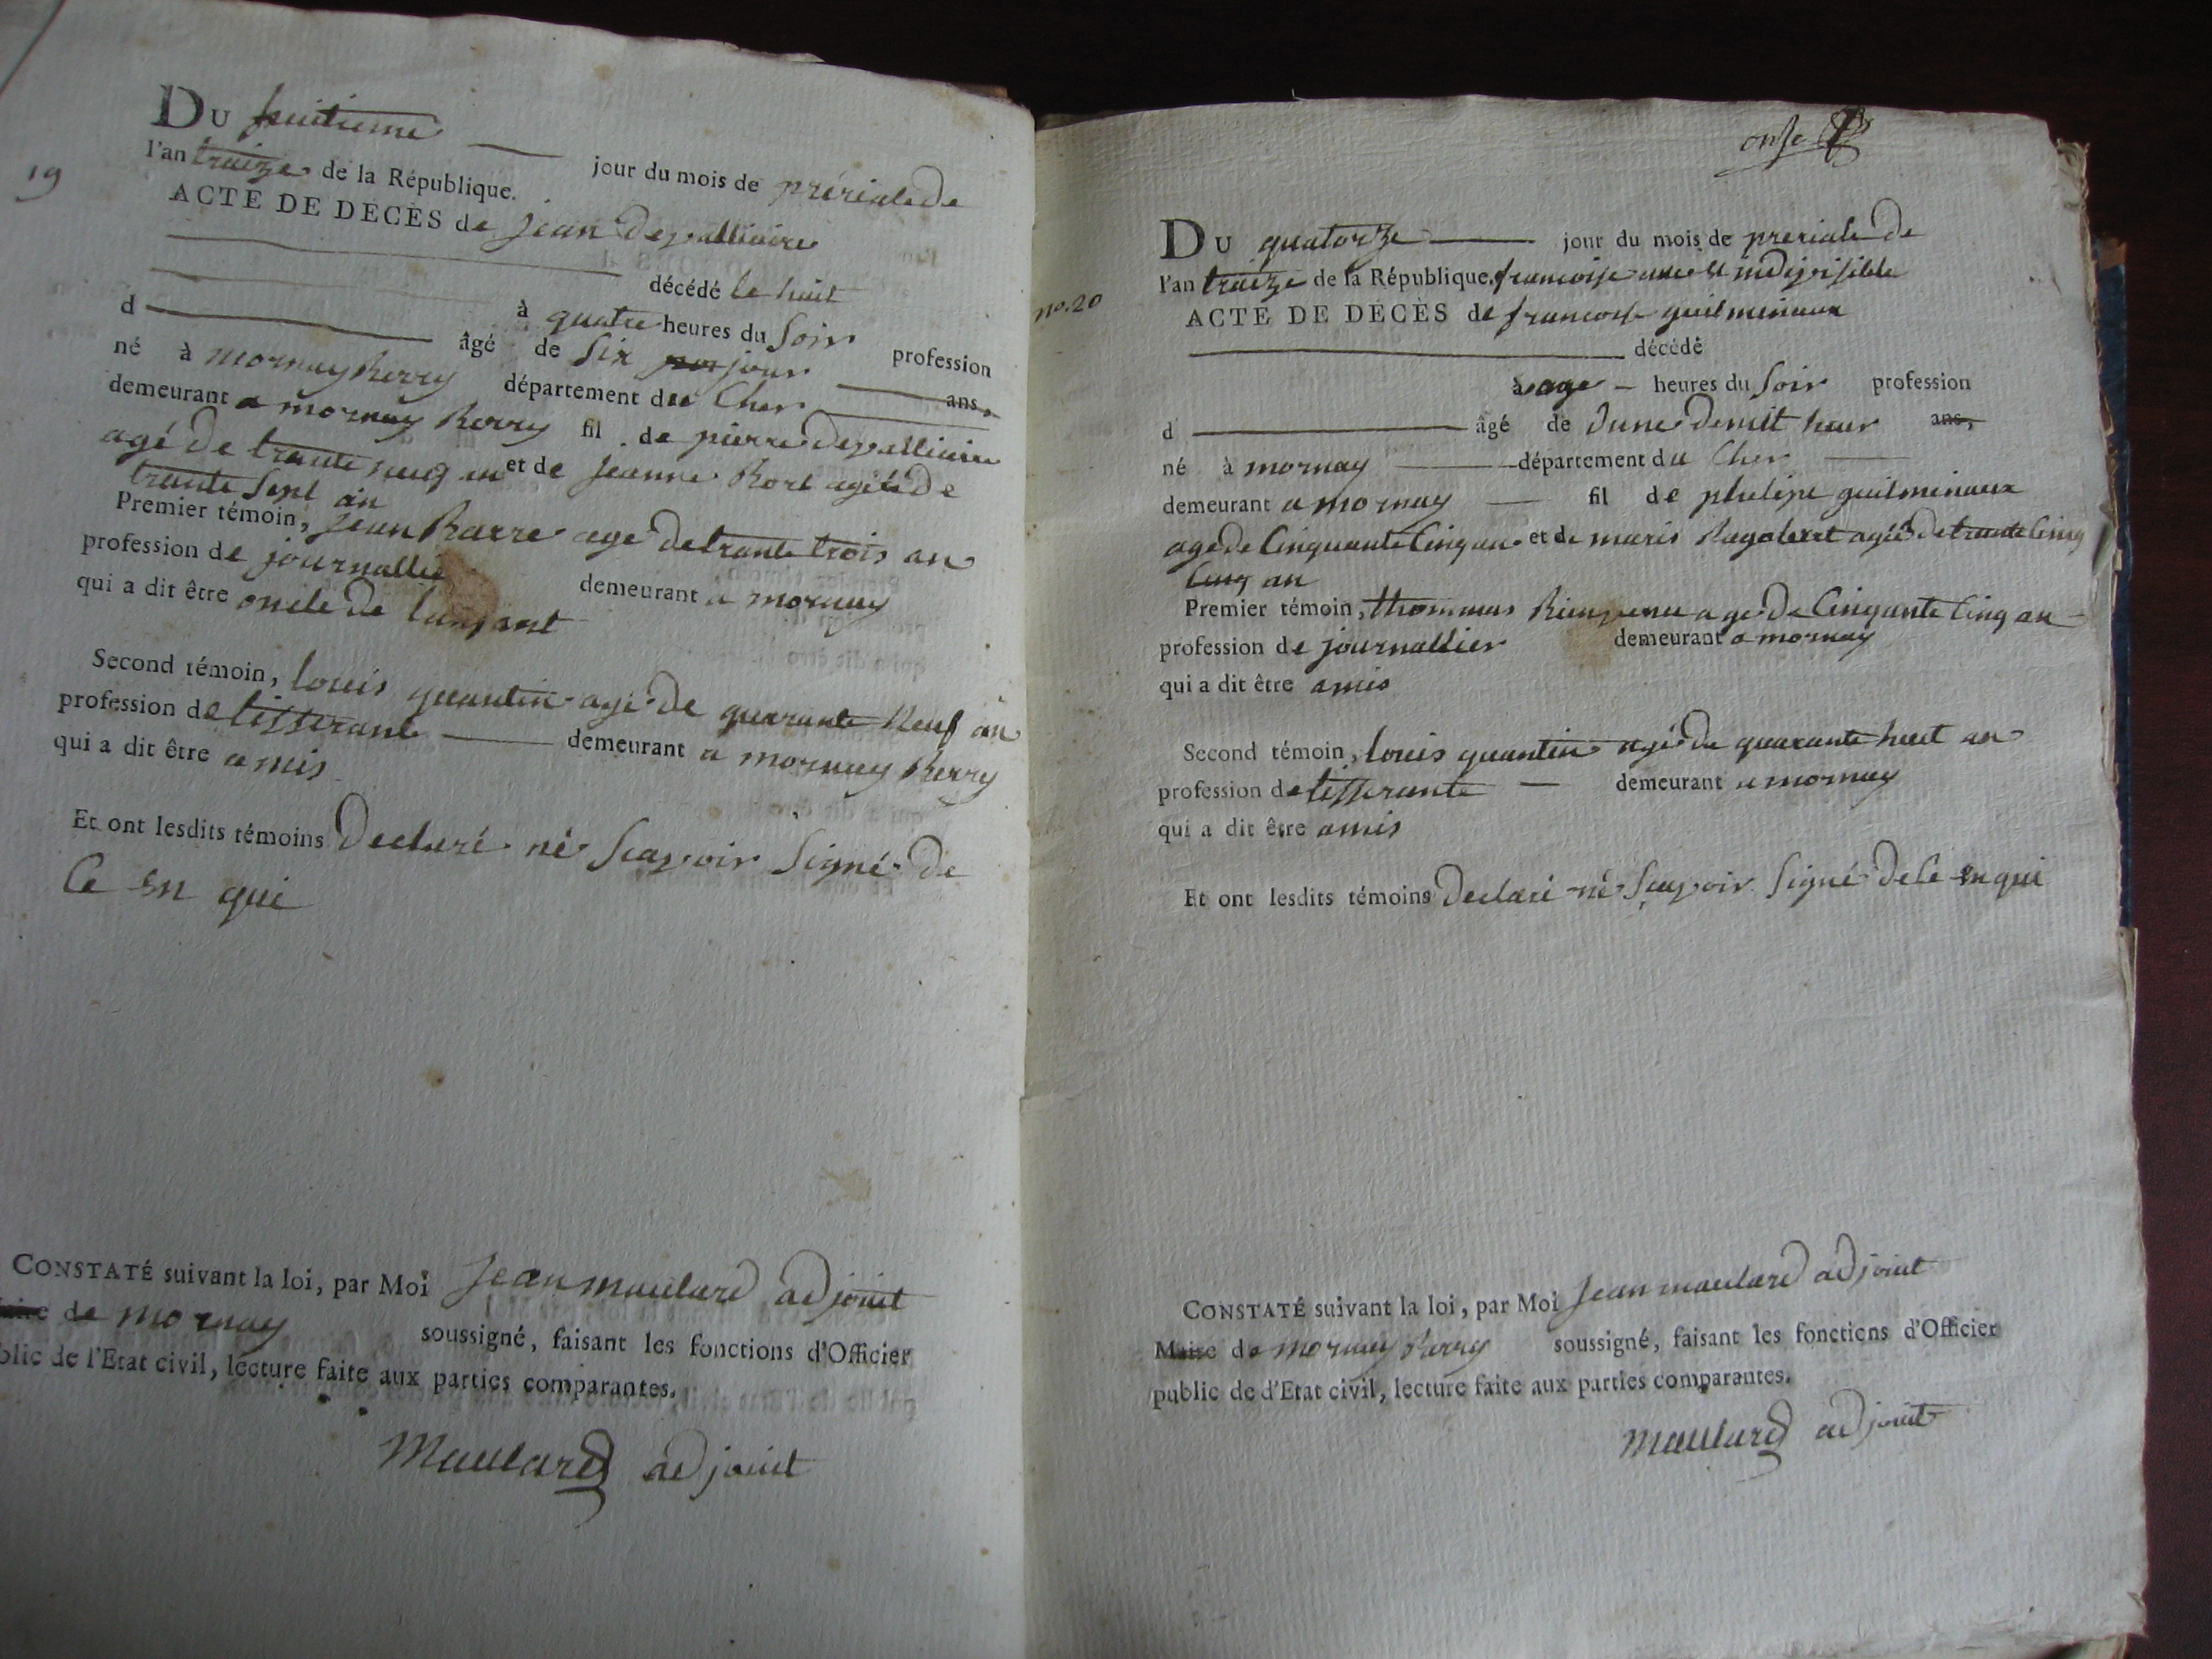 19
DU huitieme jour du mois de preriale de
l'an traize de la République.
ACTE DE DECÈS de jean depallieire
décédé le huit
à quatre heures du Soir profession
d âgé de Six jour ans,
né à mornay Berry département du Cher
demeurant a mornay Berry fil de pierre depallieire
agé de trante neuf an et de jeanne agéé de
trante Sept an
Premier témoin, jean Barre age de trante trois an
profession de journallié demeurant a mornay
qui a dit être oncle de lanfant
Second témoin, louis quantin agé de quarante Neuf an
profession de tisserante demeurant a mornay Berry
qui a dit être amis
Et ont lesdits témoins Declaré né Scavoir Signé de
Ce En qui
CONSTATÉ suivant la loi, par Moi Jean maulard adjoint
de mornay soussigné, faisant les fonctions d'Officier
blic de l'Etat civil, lecture faite aux parties comparantes.
Maulard adjoint
onse
no. 20
DU quatorze jour du mois de preriale de
l'an traize de la République. francoise une et indivisible
ACTE DE DECÈS de francoise guilminaux
décédé
à age heures du Soir profession
d âgé de dune demit heur ans,
né à mornay département du Cher
demeurant a mornay fil de phelipe guilminaux
age de Cinquante Cinq an et de maris agéé de trante Cinq
Cinq an
Premier témoin, thommas Bienvenu age de Cinqante Cinq an
profession de journallier demeurant a mornay
qui a dit être amis
Second témoin, louis quantin agé de quarante huit an
profession de tisserante demeurant a mornay
qui a dit être amis
Et ont lesdits témoins Declaré né Scavoir Signé de Ce En qui
CONSTATÉ suivant la loi, par Moi Jean maulard adjoint
Maire de mornay Berry soussigné, faisant les fonctions d'Officier
public de d'Etat civil, lecture faite aux parties comparantes.
maulard adjoint